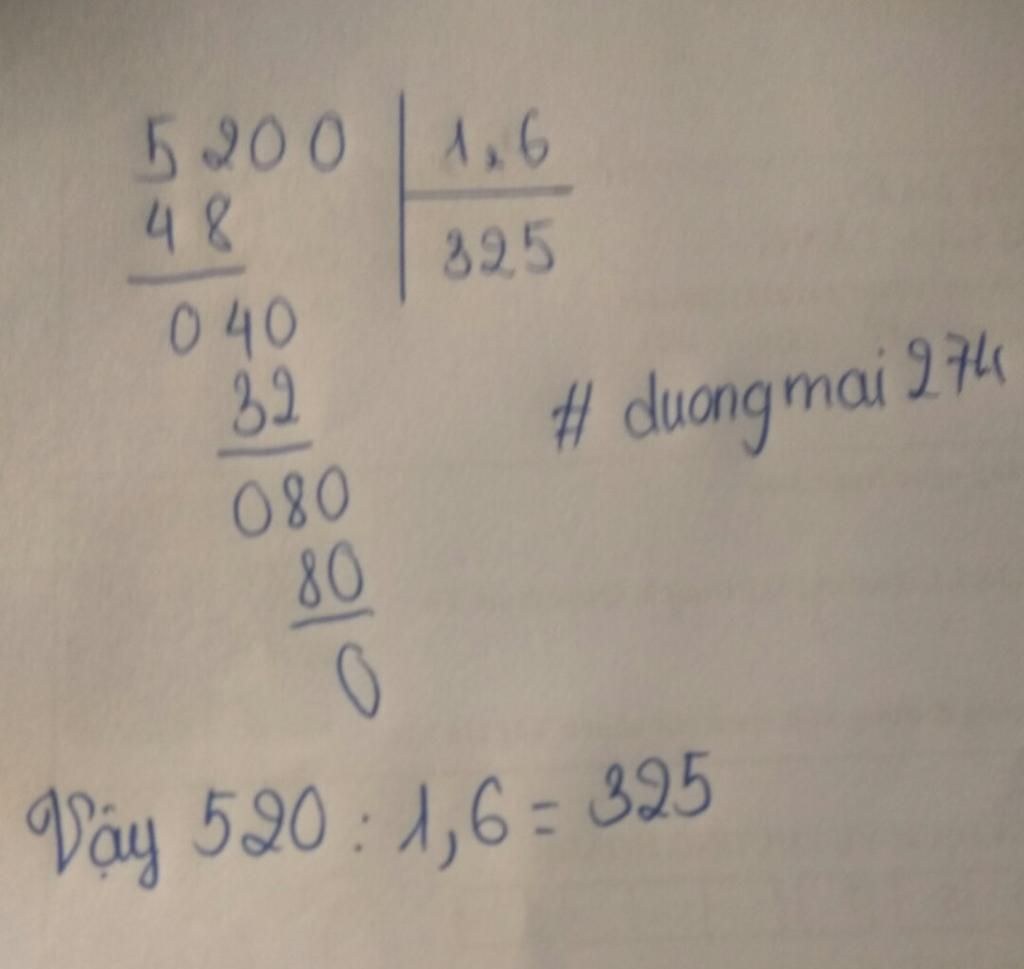 5200 1,6
48 325
040
32
080
80
0
# duongmai
Vậy 520 : 1,6 = 325